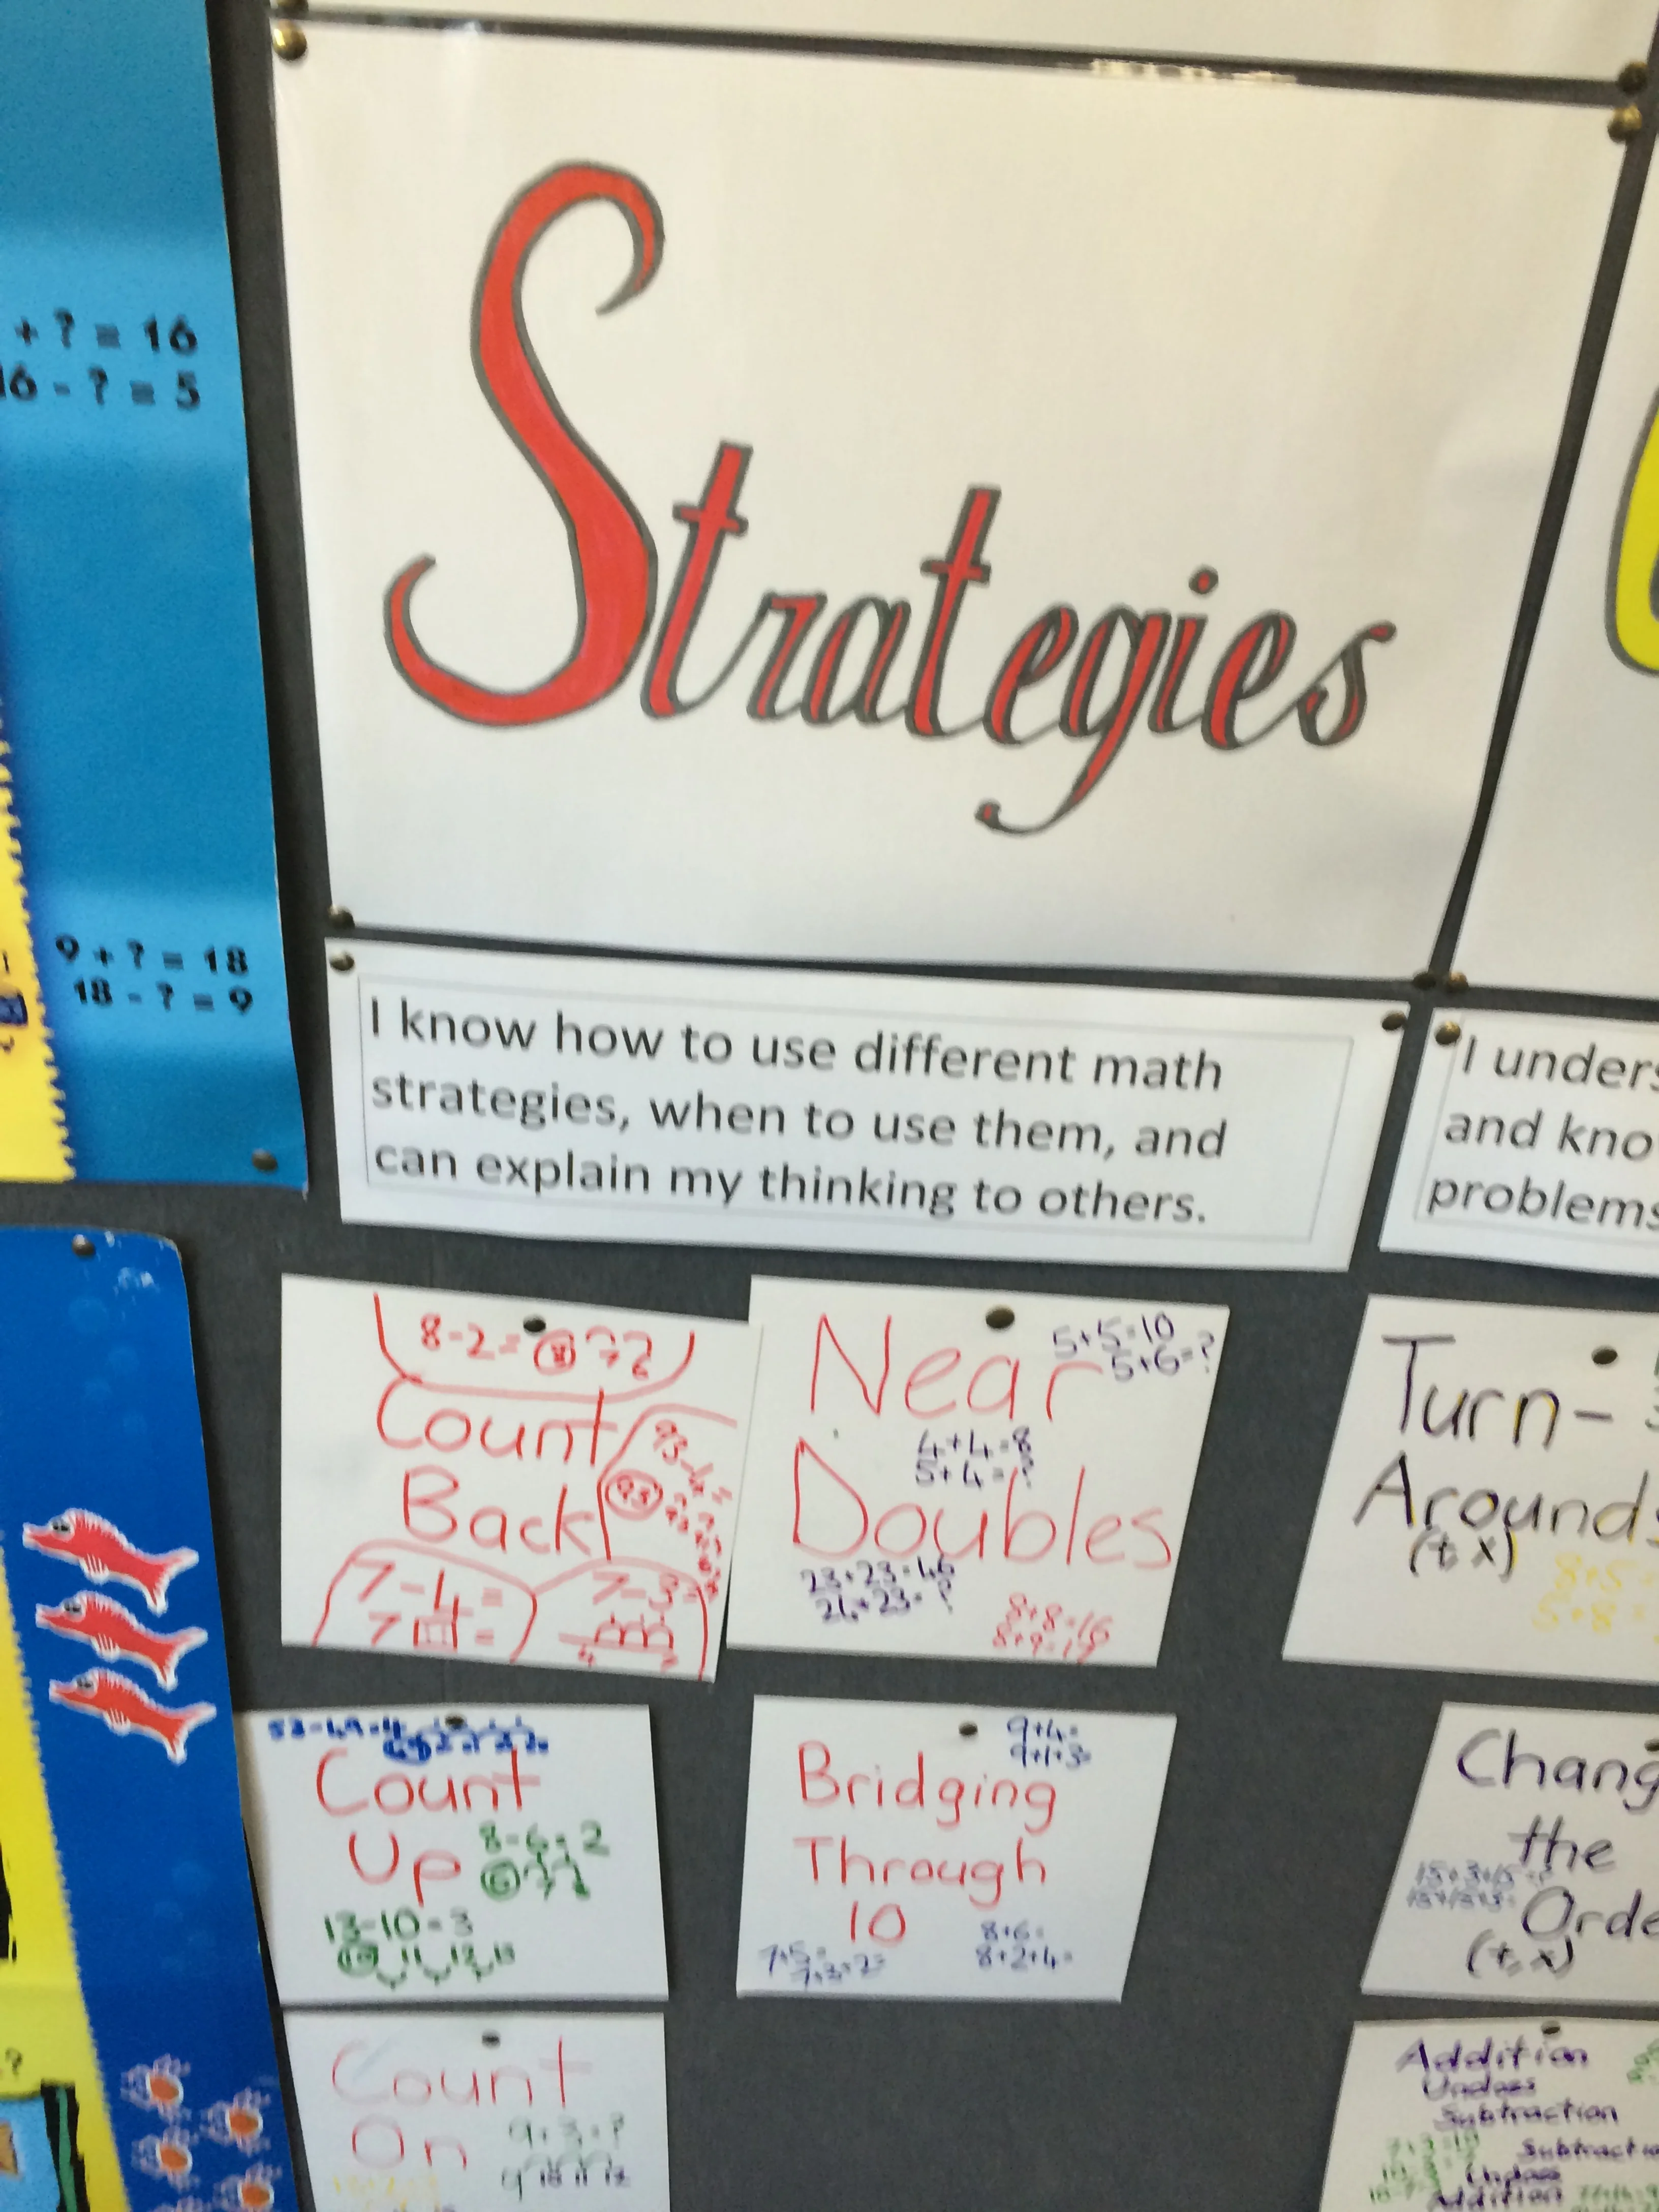 + ? = 16
16 - ? = 5
9 + ? = 18
18 - ? = 9
Strategies
I know how to use different math
strategies, when to use them, and
can explain my thinking to others.
I unders
and kno
problems
8-2=
Count
Back
7-4=
7-3=
Near
5+5=10
5+6=?
4+4=8
5+4=?
Doubles
23+23=46
24+23=?
8+8=16
8+9=17
Turn-
Arounds
(+ x)
8+5=
5+8=
53-49=4
Count
Up
8-6=2
6 7 8
13-10=3
10 11 12 13
9+4=
9+1+3=
Bridging
Through
10
7+5=
7+3+2=
8+6=
8+2+4=
Chang
the
15+3+15=?
15+15+3=
Orde
(+, x)
Count
On
9+3=?
9 10 11 12
Addition
Undoes
Subtraction
Subtractio
Undoes
Addition